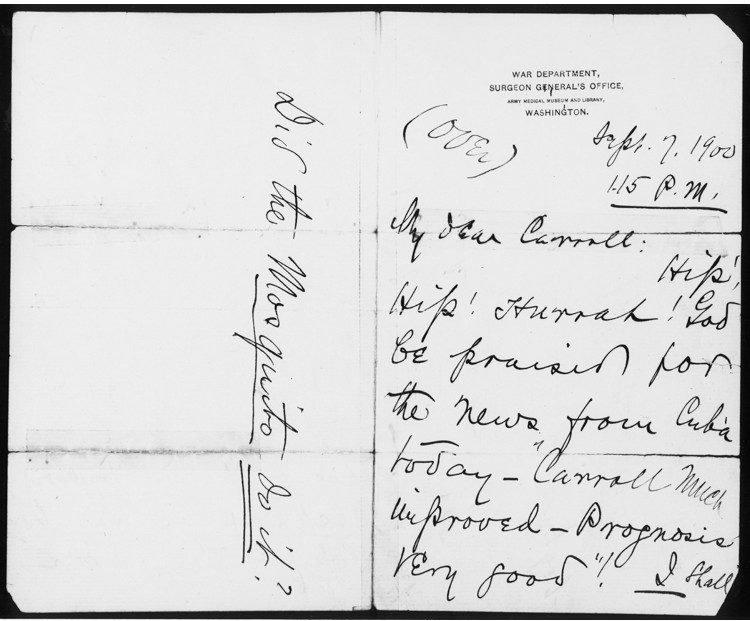 WAR DEPARTMENT,
SURGEON GENERAL'S OFFICE,
ARMY MEDICAL MUSEUM AND LIBRARY,
WASHINGTON.
(Over)
Sept. 7, 1900
1.15 P.M.
My dear Carroll:
Hip!
Hip! Hurrah! God
be praised for
the news from Cuba
today – "Carroll much
improved – Prognosis
very good"! I shall
Did the Mosquito do it?